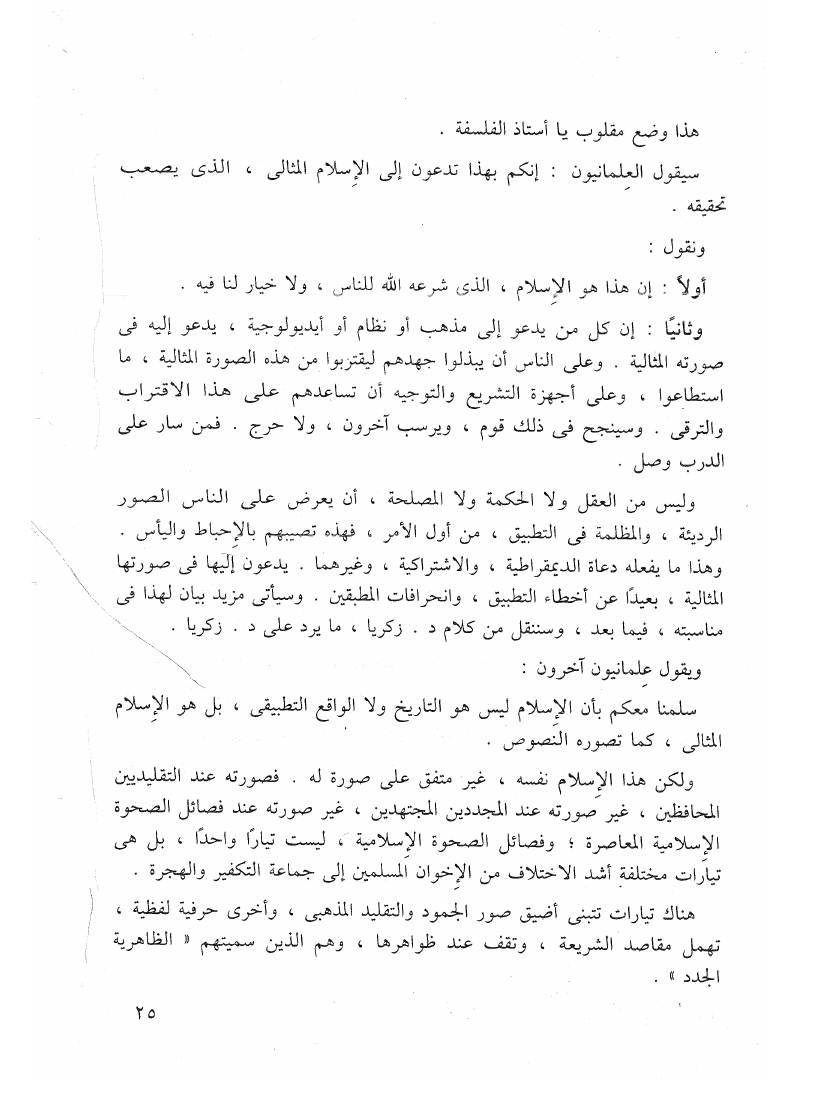 هذا وضع مقلوب يا أستاذ الفلسفة .
سيقول العلمانيون : إنكم بهذا تدعون إلى الإسلام المثالى ، الذى يصعب
تحقيقه .
ونقول :
أولاً : إن هذا هو الإسلام ، الذى شرعه الله للناس ، ولا خيار لنا فيه .
وثانيًا : إن كل من يدعو إلى مذهب أو نظام أو أيديولوجية ، يدعو إليه فى
صورته المثالية . وعلى الناس أن يبذلوا جهدهم ليقتربوا من هذه الصورة المثالية ، ما
استطاعوا ، وعلى أجهزة التشريع والتوجيه أن تساعدهم على هذا الاقتراب
والترقى . وسينجح فى ذلك قوم ، ويرسب آخرون ، ولا حرج . فمن سار على
الدرب وصل .
وليس من العقل ولا الحكمة ولا المصلحة ، أن يعرض على الناس الصور
الرديئة ، والمظلمة فى التطبيق ، من أول الأمر ، فهذه تصيبهم بالإحباط واليأس .
وهذا ما يفعله دعاة الديمقراطية ، والاشتراكية ، وغيرهما . يدعون إليها فى صورتها
المثالية ، بعيدًا عن أخطاء التطبيق ، وانحرافات المطبقين . وسيأتى مزيد بيان لهذا فى
مناسبته ، فيما بعد ، وسننقل من كلام د . زكريا ، ما يرد على د . زكريا .
ويقول علمانيون آخرون :
سلمنا معكم بأن الإسلام ليس هو التاريخ ولا الواقع التطبيقى ، بل هو الإسلام
المثالى ، كما تصوره النصوص .
ولكن هذا الإسلام نفسه ، غير متفق على صورة له . فصورته عند التقليديين
المحافظين ، غير صورته عند المجددين المجتهدين ، غير صورته عند فصائل الصحوة
الإسلامية المعاصرة ؛ وفصائل الصحوة الإسلامية ، ليست تيارًا واحدًا ، بل هى
تيارات مختلفة أشد الاختلاف من الإخوان المسلمين إلى جماعة التكفير والهجرة .
هناك تيارات تتبنى أضيق صور الجمود والتقليد المذهبى ، وأخرى حرفية لفظية ،
تهمل مقاصد الشريعة ، وتقف عند ظواهرها ، وهم الذين سميتهم « الظاهرية
الجدد » .
٢٥